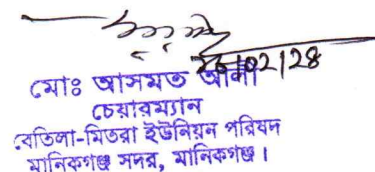 ২৬/০২/২৪
মোঃ আসমত আলী
চেয়ারম্যান
বেতিলা-মিতরা ইউনিয়ন পরিষদ
মানিকগঞ্জ সদর, মানিকগঞ্জ।